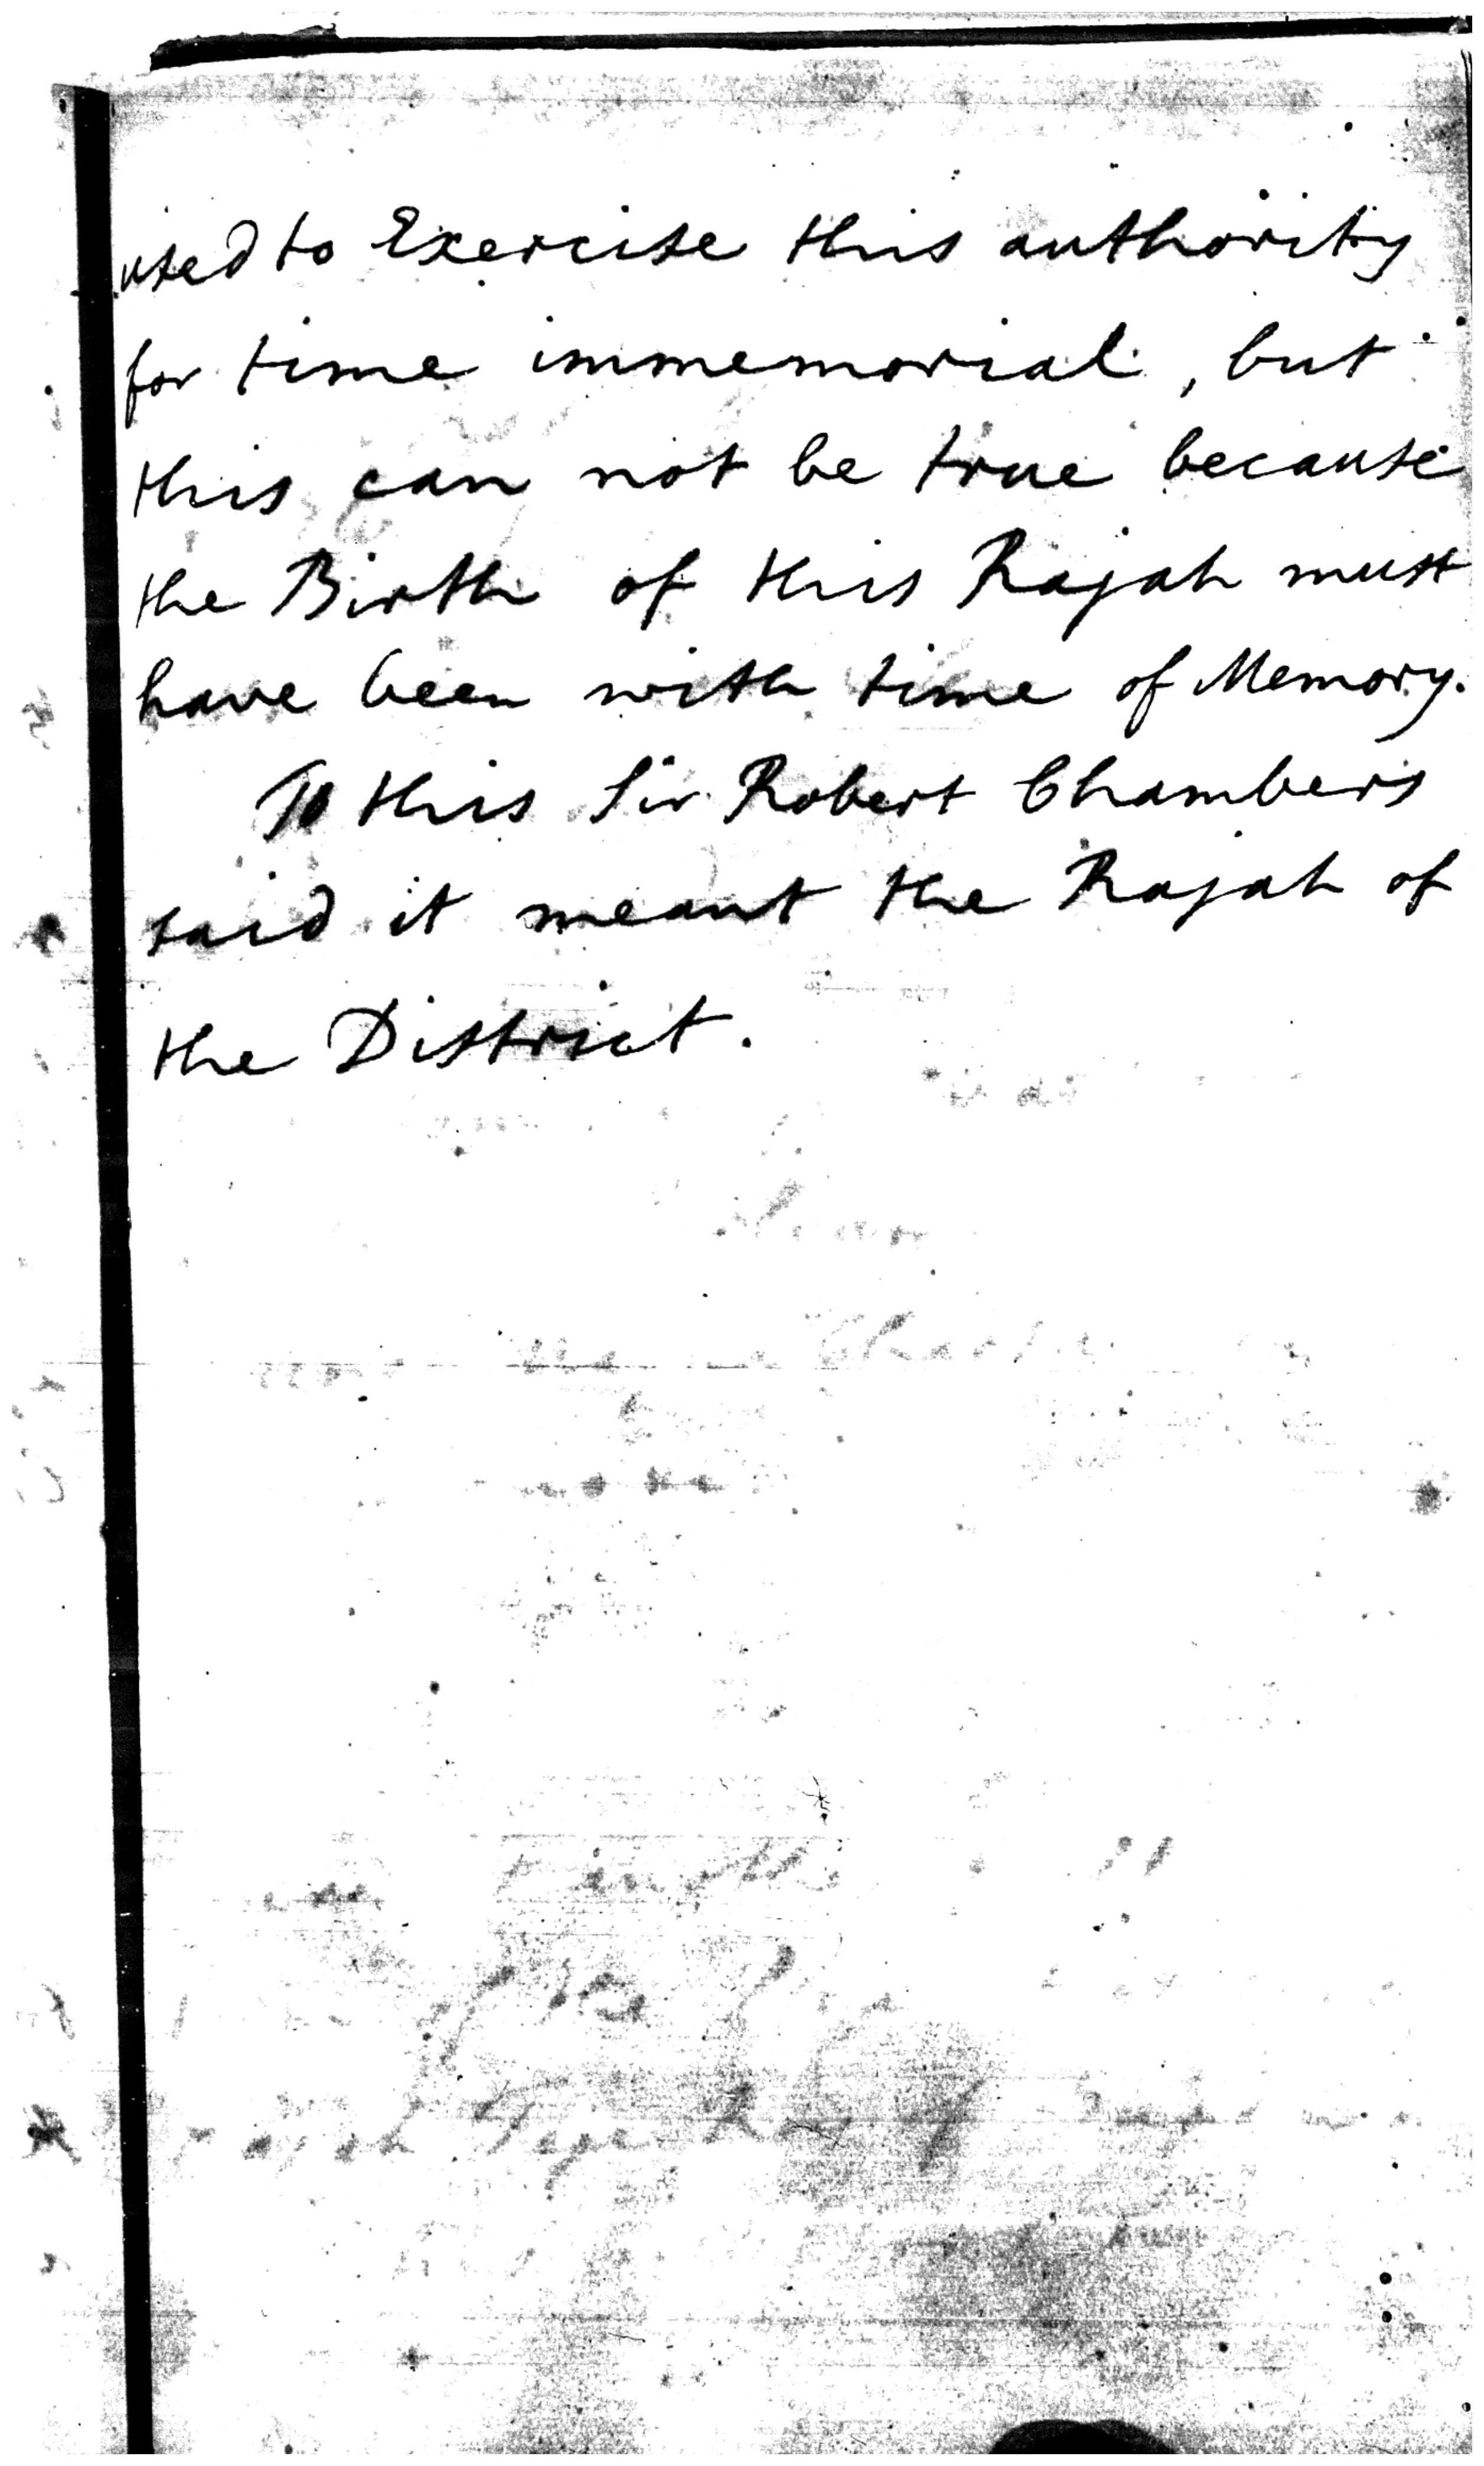 used to Exercise this authority
for time immemorial, but
this can not be true because
the Birth of this Rajah must
have been with time of Memory.
To this Sir Robert Chambers
said it meant the Rajah of
the District.